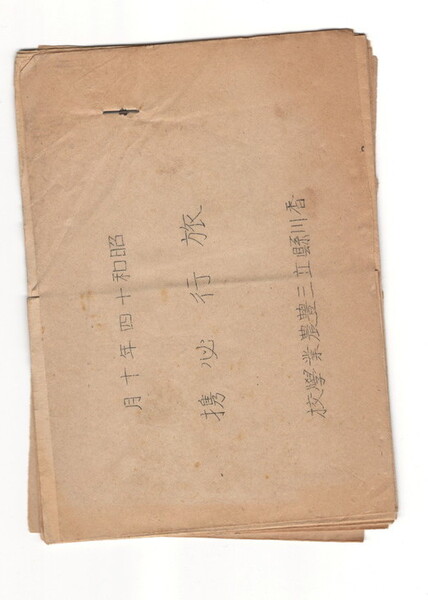 昭和十四年十月
旅行必携
香川縣立三豊農業學校